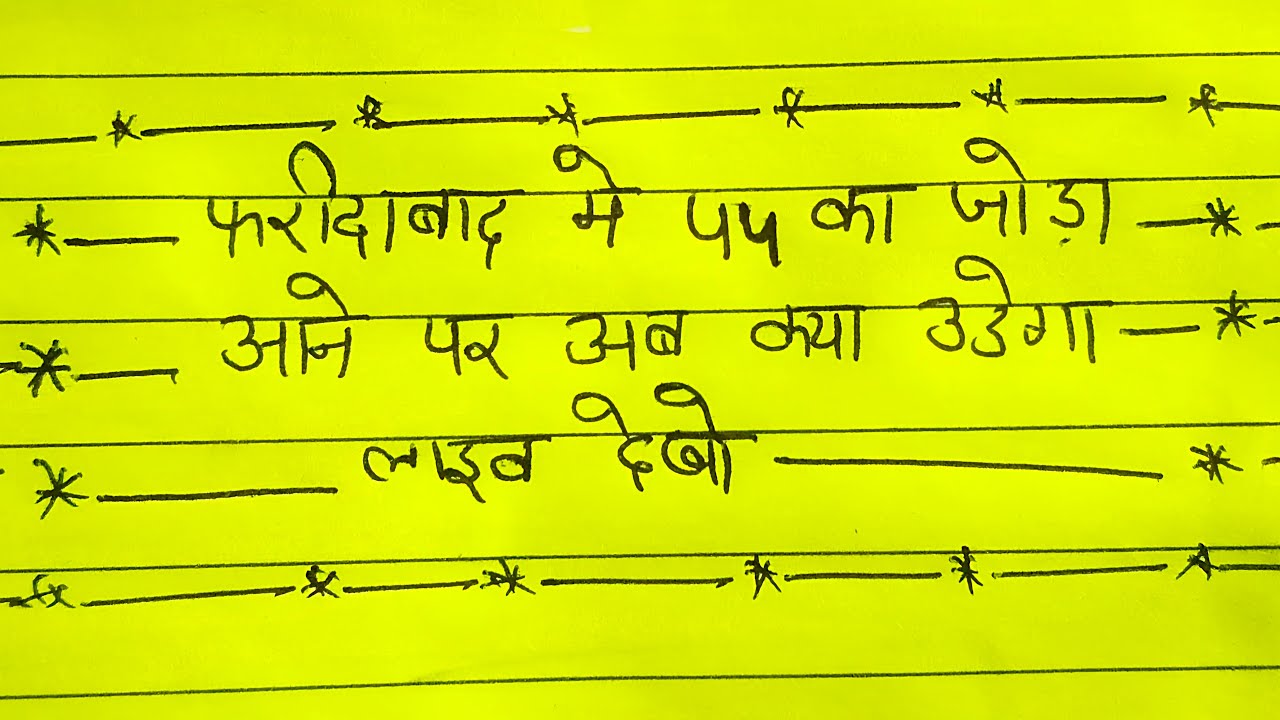 फरीदाबाद मे 55 का जोड़ा
आने पर अब क्या उडेगा
लाइव देखो